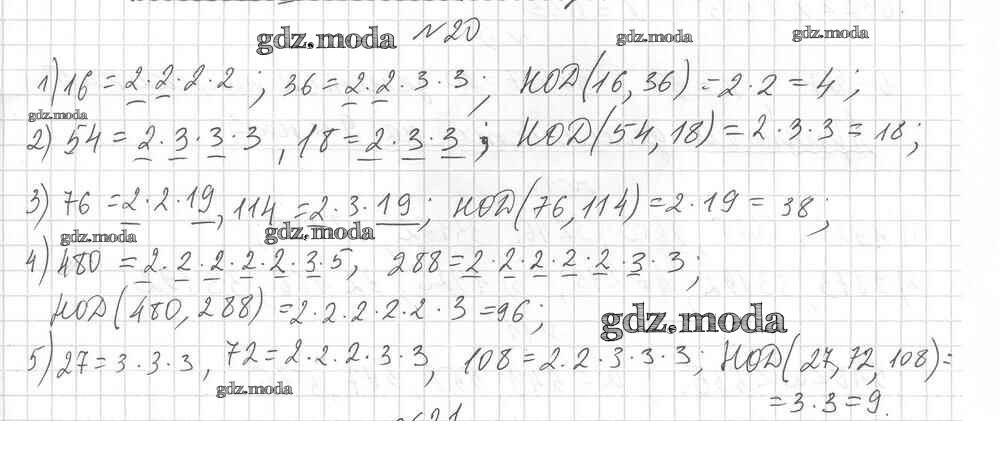 gdz.moda №20 gdz.moda gdz.moda
1) 16 = 2·2·2·2 ; 36 = 2·2·3·3 ; НОД(16, 36) = 2·2 = 4 ;
gdz.moda
2) 54 = 2·3·3·3 , 18 = 2·3·3 ; НОД(54, 18) = 2·3·3 = 18 ;
3) 76 = 2·2·19 , 114 = 2·3·19 ; НОД(76, 114) = 2·19 = 38 ;
gdz.moda gdz.moda
4) 480 = 2·2·2·2·2·3·5 , 288 = 2·2·2·2·2·3·3 ;
НОД(480, 288) = 2·2·2·2·2·3 = 96 ;
gdz.moda
5) 27 = 3·3·3 , 72 = 2·2·2·3·3 , 108 = 2·2·3·3·3 ; НОД(27, 72, 108) =
gdz.moda
= 3·3 = 9.